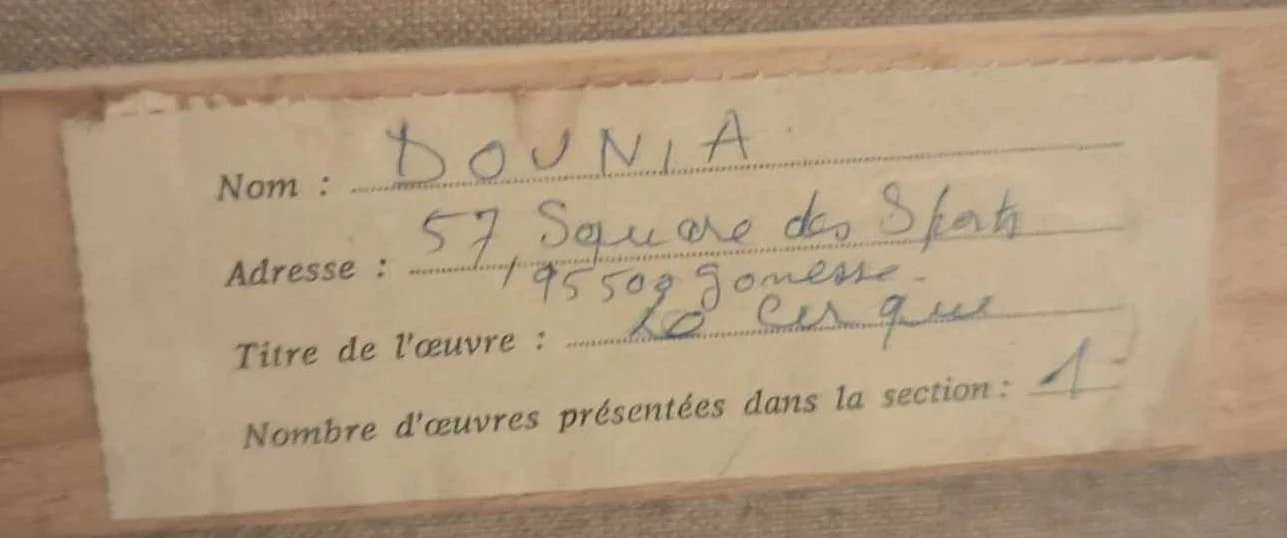 Nom : DOUNIA
Adresse : 57, Square des Sports
95500 Gonesse.
Titre de l'œuvre : Le Cirque
Nombre d'œuvres présentées dans la section : 1